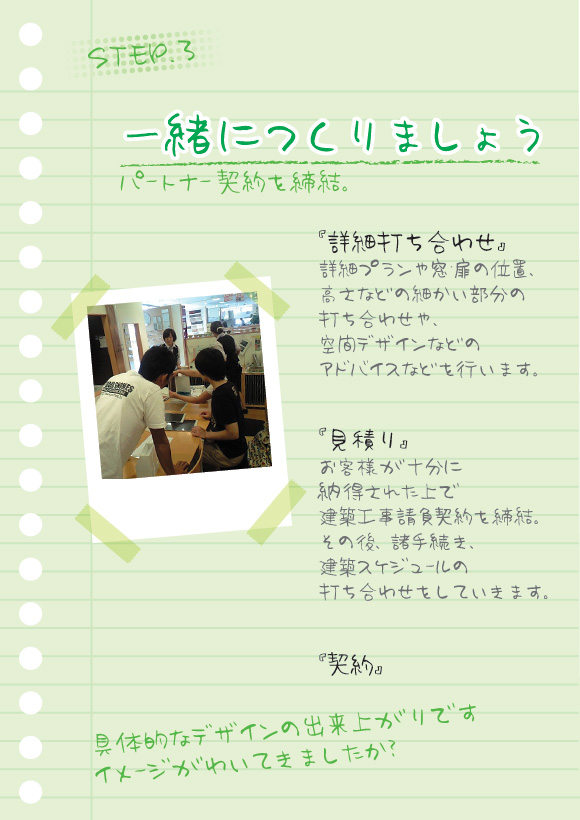 STEP.3
一緒につくりましょう
パートナー契約を締結。
『詳細打ち合わせ』
詳細プランや窓・扉の位置、
高さなどの細かい部分の
打ち合わせや、
空間デザインなどの
アドバイスなどを行います。
『見積り』
お客様が十分に
納得された上で
建築工事請負契約を締結。
その後、諸手続き、
建築スケジュールの
打ち合わせをしていきます。
『契約』
具体的なデザインの出来上がりです
イメージがわいてきましたか?